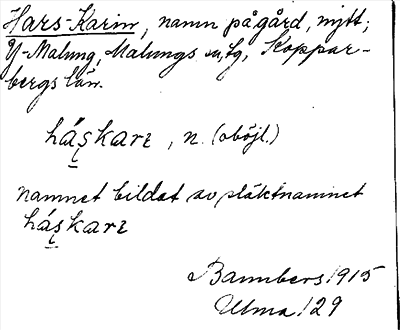 Hars-Karin, namn på gård, nytt;
Y-Malung, Malungs sn, tg, Koppar-
bergs län.
háʂkarɛ, n. (oböjl.)
namnet bildat av släktnamnet
háʂkarɛ
Bannbers 1915
Ulma 129